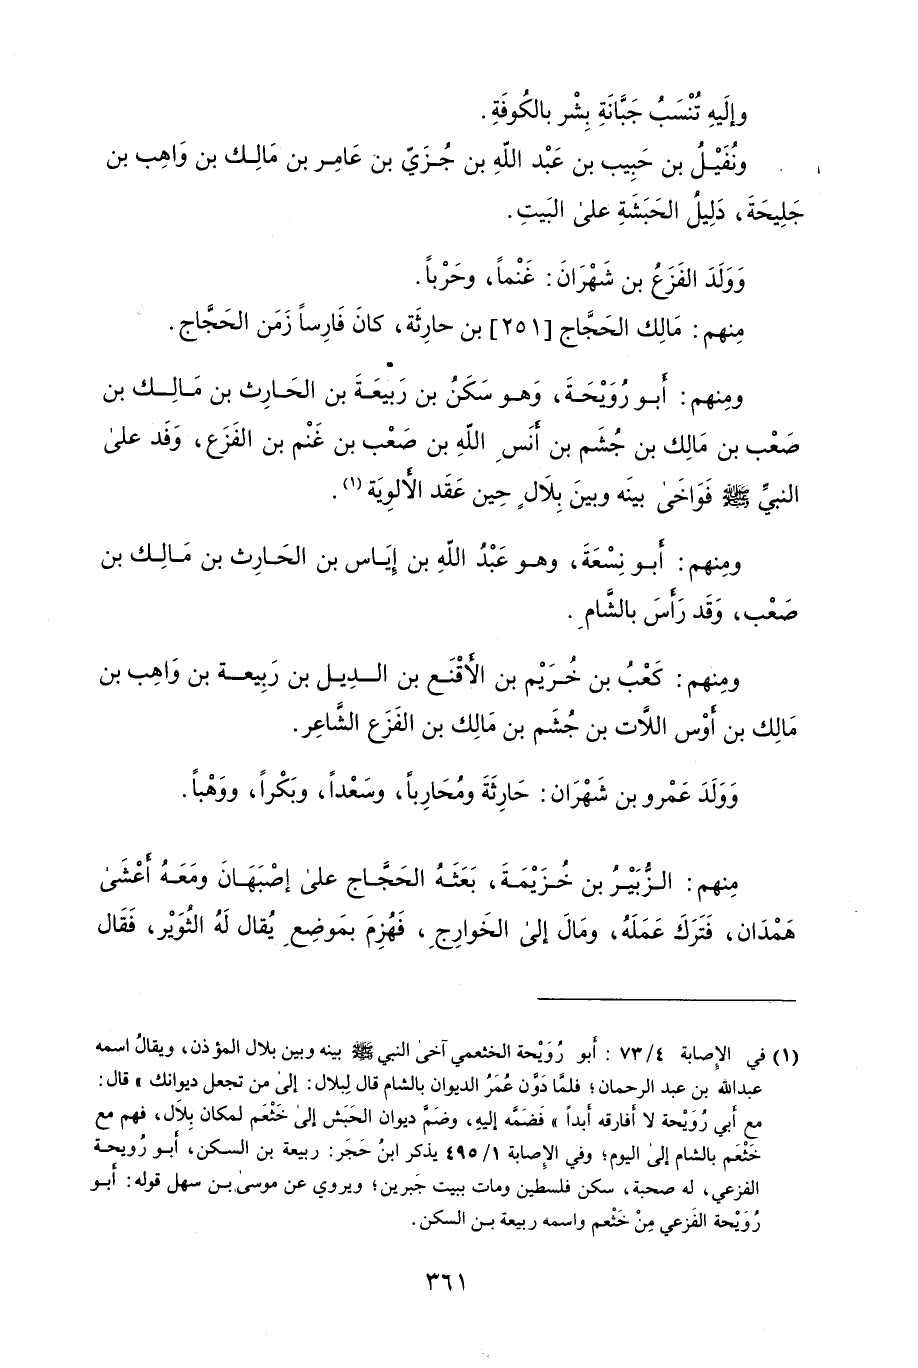 وإلَيهِ تُنْسَبُ جَبَّانَةِ بِشْر بالكُوفَةِ.
ونُفَيْلُ بن حَبِيب بن عَبْد اللّهِ بن جُزَيّ بن عَامِر بن مَالِك بن وَاهِب بن
جَلِيحَةَ، دَلِيلُ الحَبَشَةِ علىٰ البَيتِ.
وَوَلَدَ الفَزَعُ بن شَهْرَانَ: غَنْماً، وحَرْباً.
مِنهم: مَالِك الحَجَّاج [٢٥١] بن حارثَة، كانَ فَارِساً زَمَن الحَجَّاج.
ومِنهم: أَبو رُوَيْحَةَ، وَهو سَكَنُ بن رَبيعَةَ بن الحَارِث بن مَالِك بن
صَعْب بن مَالِك بن جُشَم بن أَنَسِ اللّهِ بن صَعْب بن غَنْم بن الفَزَع، وَفَد علىٰ
النبيِّ ﷺ فَوَاخَىٰ بينَه وبينَ بِلَالٍ حِين عَقَد الأَلوِيَة (١).
ومِنهم: أَبو نِسْعَةَ، وهو عَبْدُ اللّهِ بن إيَاس بن الحَارِث بن مَالِك بن
صَعْب، وَقَد رَأَسَ بالشَّامِ.
ومِنهم: كَعْبُ بن خُرَيْم بن الأَقْنَع بن الدِيل بن رَبِيعة بن وَاهِب بن
مَالِك بن أَوْس اللَّات بن جُشَم بن مَالِك بن الفَزَع الشَّاعِر.
وَوَلَدَ عَمْرو بن شَهْرَان: حَارِثَةَ ومُحَارِباً، وسَعْداً، وبَكْراً، ووَهْباً.
مِنهم: الزُّبَيْرُ بن خُزَيْمَةَ، بَعَثَهُ الحَجَّاج علىٰ إصْبَهَانَ ومَعَهُ أَعْشَىٰ
هَمْدَان، فَتَرَكَ عَمَلَهُ، ومَالَ إلىٰ الخَوارِجِ، فَهُزِمَ بمَوضِعٍ يُقال لَهُ الثُوَيْر، فَقَال
(١) في الإصابة ٤/ ٧٣ : أَبو رُوَيْحة الخثعمي آخىٰ النبي ﷺ بينه وبين بلال المؤذن، ويقالُ اسمه
عبدالله بن عبد الرحمان؛ فلمَّا دَوَّن عُمَرُ الديوان بالشام قال لِبلال: إلىٰ من تجعل ديوانك » قال:
مع أبي رُوَيْحة لا أفارقه أبداً » فضمَّه إليه، وضمَّ ديوان الحَبَش إلىٰ خَثْعَم لمكان بِلَال، فهم مع
خَثْعَم بالشام إلىٰ اليوم؛ وفي الإصابة ١/ ٤٩٥ يذكر ابنُ حَجَر: ربيعة بن السكن، أَبو رُويحة
الفزعي، له صحبة، سكن فلسطين ومات ببيت جبرين؛ ويروي عن موسىٰ بن سهل قوله: أَبو
رُوَيْحة الفَزعي مِنْ خَثْعم واسمه ربيعة بن السكن.
٣٦١